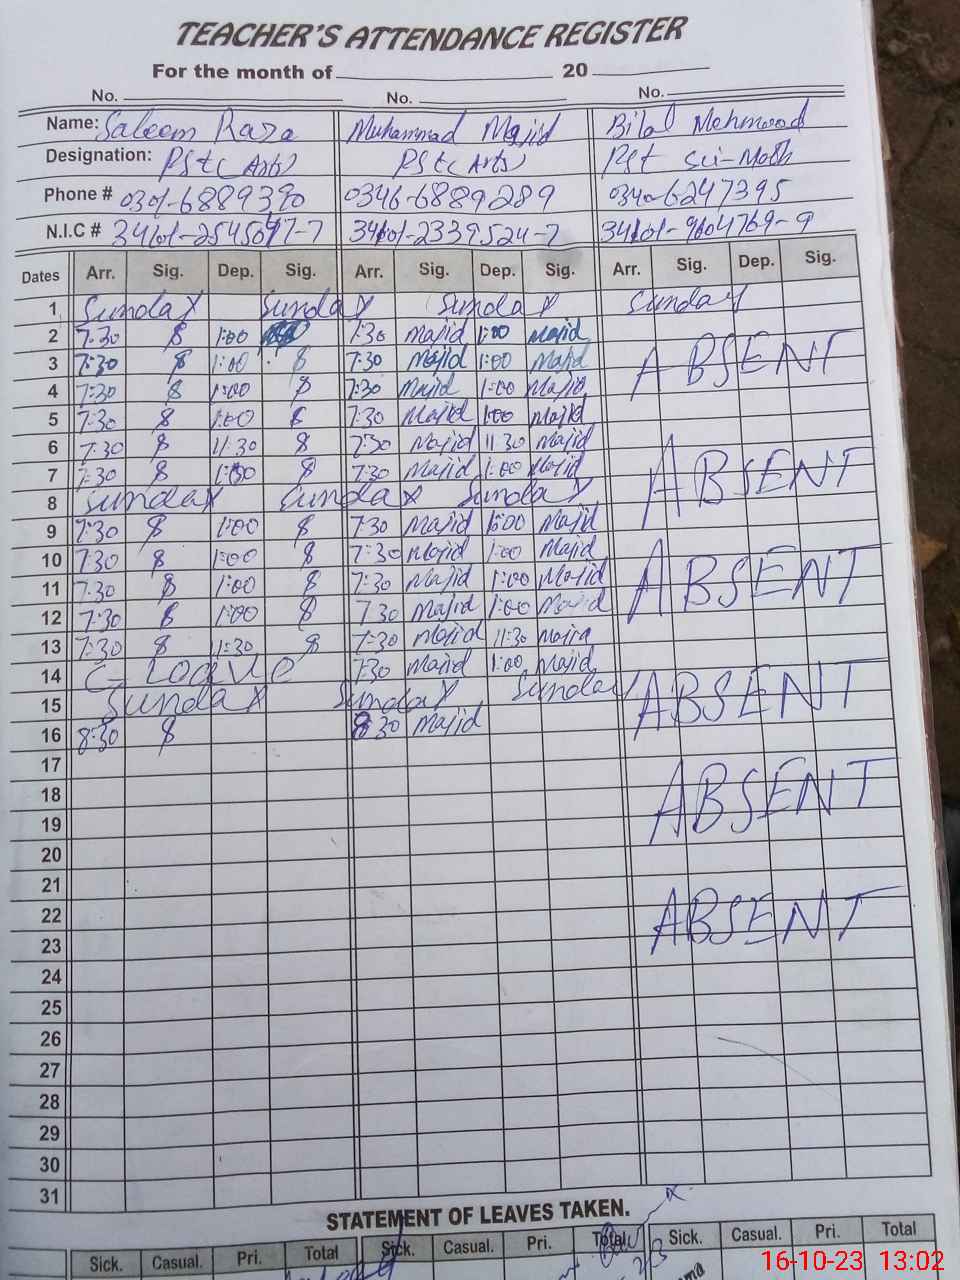 TEACHER'S ATTENDANCE REGISTER
For the month of 20
No. No. No.
Name: Saleem Raza Muhammad Majid Bilal Mehmood
Designation: Pst (Arts) Pst (Arts) Pst Sci-Math
Phone # 0301-6889390 0346-6889289 0340-6247395
N.I.C # 34601-2339524-7 34101-9604769-9
Dates Arr. Sig. Dep. Sig. Arr. Sig. Dep. Sig. Arr. Sig. Dep. Sig.
1 Sunday Sunday Sunday Sunday
2 7:30 1:00 7:30 Majid 1:00 Majid
3 7:30 1:00 7:30 Majid 1:00 Majid ABSENT
4 7:30 1:00 7:30 Majid 1:00 Majid
5 7:30 1:00 7:30 Majid 1:00 Majid
6 7:30 11:30 7:30 Majid 11:30 Majid
7 7:30 1:00 7:30 Majid 1:00 Majid ABSENT
8 Sunday Sunday Sunday
9 7:30 1:00 7:30 Majid 1:00 Majid
10 7:30 1:00 7:30 Majid 1:00 Majid
11 7:30 1:00 7:30 Majid 1:00 Majid ABSENT
12 7:30 1:00 7:30 Majid 1:00 Majid
13 7:30 11:30 7:30 Majid 11:30 Majid
14 C- Leave 7:30 Majid 1:00 Majid
15 Sunday Sunday Sunday ABSENT
16 8:30 8:30 Majid
17
18 ABSENT
19
20
21
22 ABSENT
23
24
25
26
27
28
29
30
31
STATEMENT OF LEAVES TAKEN.
Sick. Casual. Pri. Total Sick. Casual. Pri. Total Sick. Casual. Pri. Total
16-10-23 13:02